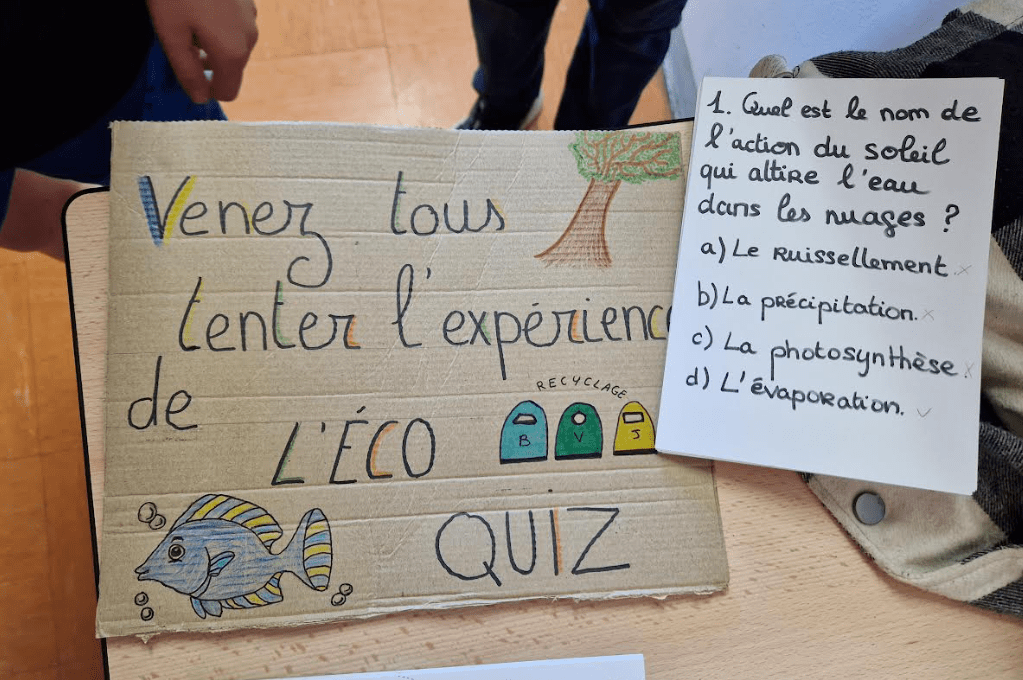 Venez tous
tenter l'expérience
de
RECYCLAGE
B V J
L'ÉCO
QUIZ
1. Quel est le nom de
l'action du soleil
qui attire l'eau
dans les nuages ?
a) Le ruissellement.
b) La précipitation.
c) La photosynthèse.
d) L'évaporation.